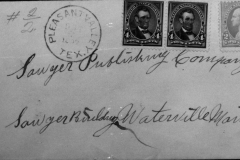 # 6/2
PLEASANT VALLEY
TEX.
4 4
Sawyer Publishing Company
Sawyer Building Waterville